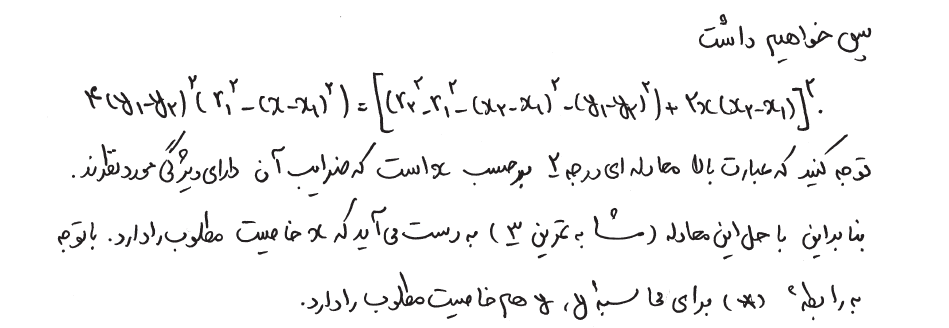 پس خواهیم داشت
۴(y₁-y₂)²(r₁²-(x-x₁)²) = [(r₂²-r₁²-(x₂-x₁)²-(y₁-y₂)²)+۲x(x₂-x₁)]².
توجه کنید که عبارت بالا معادله ای درجه ۲ برحسب x است که ضرایب آن دارای ویژگی مورد نظرند.
بنابراین با حل این معادله (مشابه تمرین ۳) به دست می آید که x خاصیت مطلوب را دارد. با توجه
به رابطهٔ (*) برای محاسبهٔ y، y هم خاصیت مطلوب را دارد.